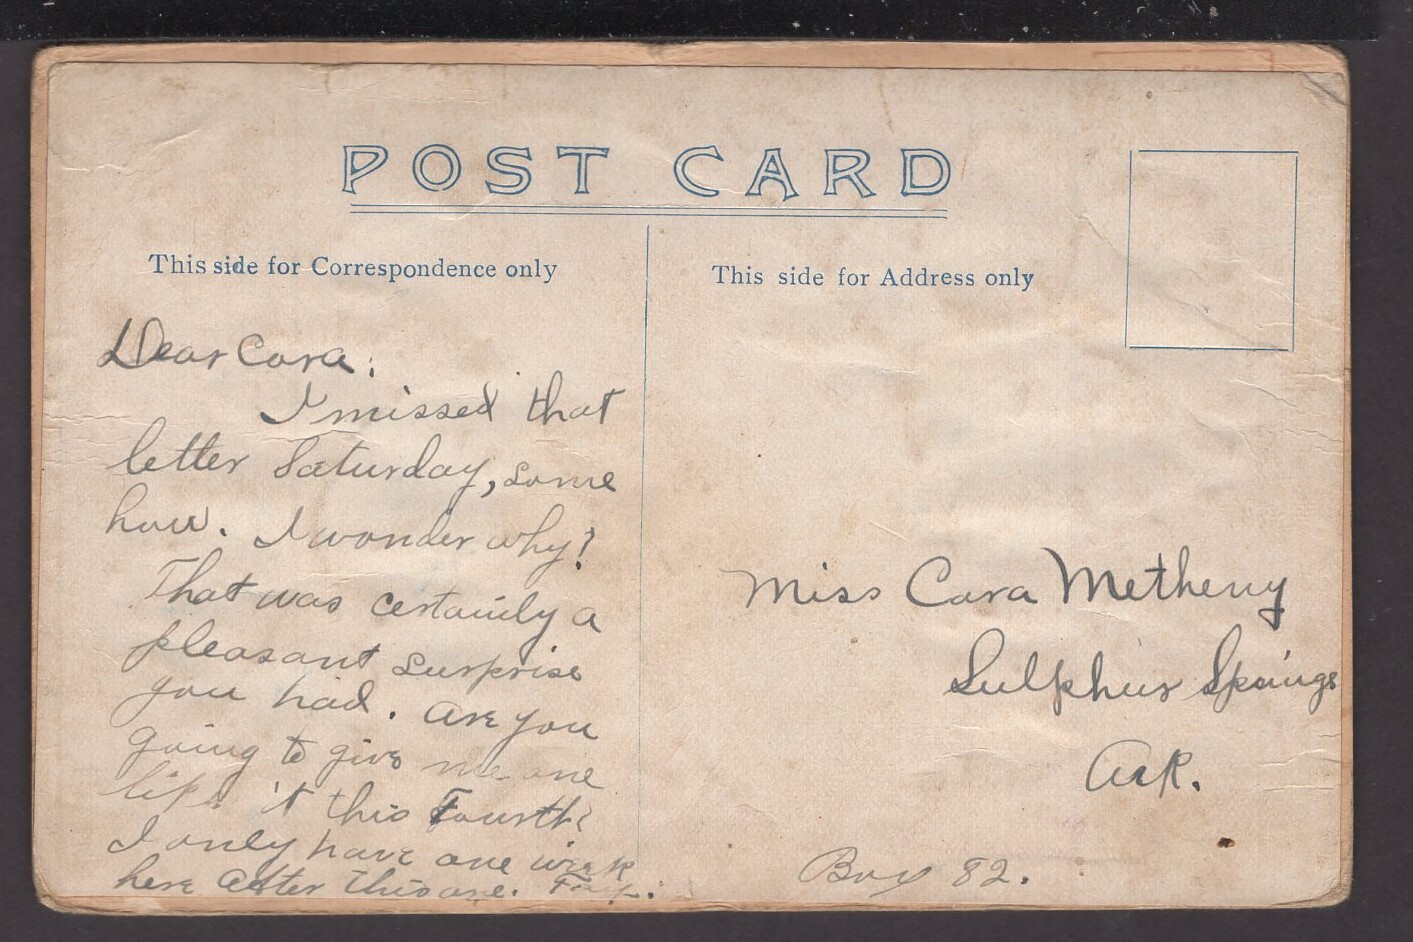 POST CARD
This side for Correspondence only
This side for Address only
Dear Cora:
I missed that
letter Saturday, some
how. I wonder why?
That was certainly a
pleasant surprise
you had. Are you
going to give me one
like it this Fourth?
I only have one week
here after this one.
Miss Cora Metheny
Sulphur Springs
Ark.
Box 82.